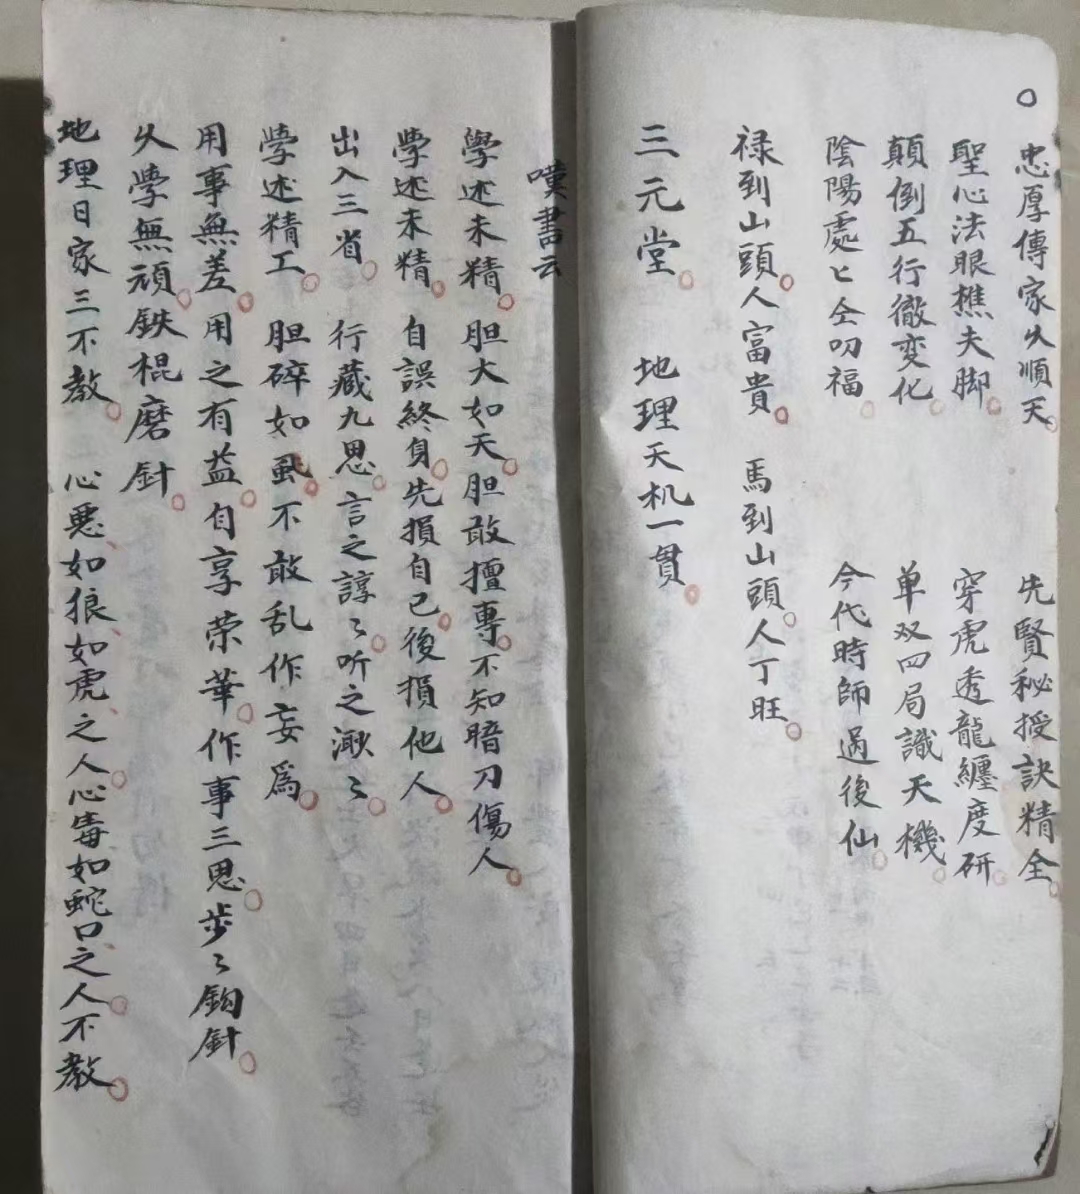 〇忠厚傳家久順天。 先賢秘授訣精全。
聖心法眼樵夫脚。 穿虎透龍纏度研。
顛倒五行徹变化。 单双四局識天機。
陰陽處匕仝叨福。 今代時師過後仙。
禄到山頭。人富貴。 馬到山頭。人丁旺。
三元堂。 地理天机一貫。
嘆書云
學述未精。胆大如天。胆敢擅專。不知暗刀傷人。
学述未精。自誤終身。先損自己。後損他人。
出入三省。行藏九思。言之諄〻。听之渺〻。
学述精工。胆碎如虱。不敢乱作妄爲。
用事無差。用之有益。自享荣華。作事三思。步〻鈎針。
久學無頑。鉄棍磨針。
地理日家三不教。心悪如狼、如虎之人。心毒如蛇口之人。不教。